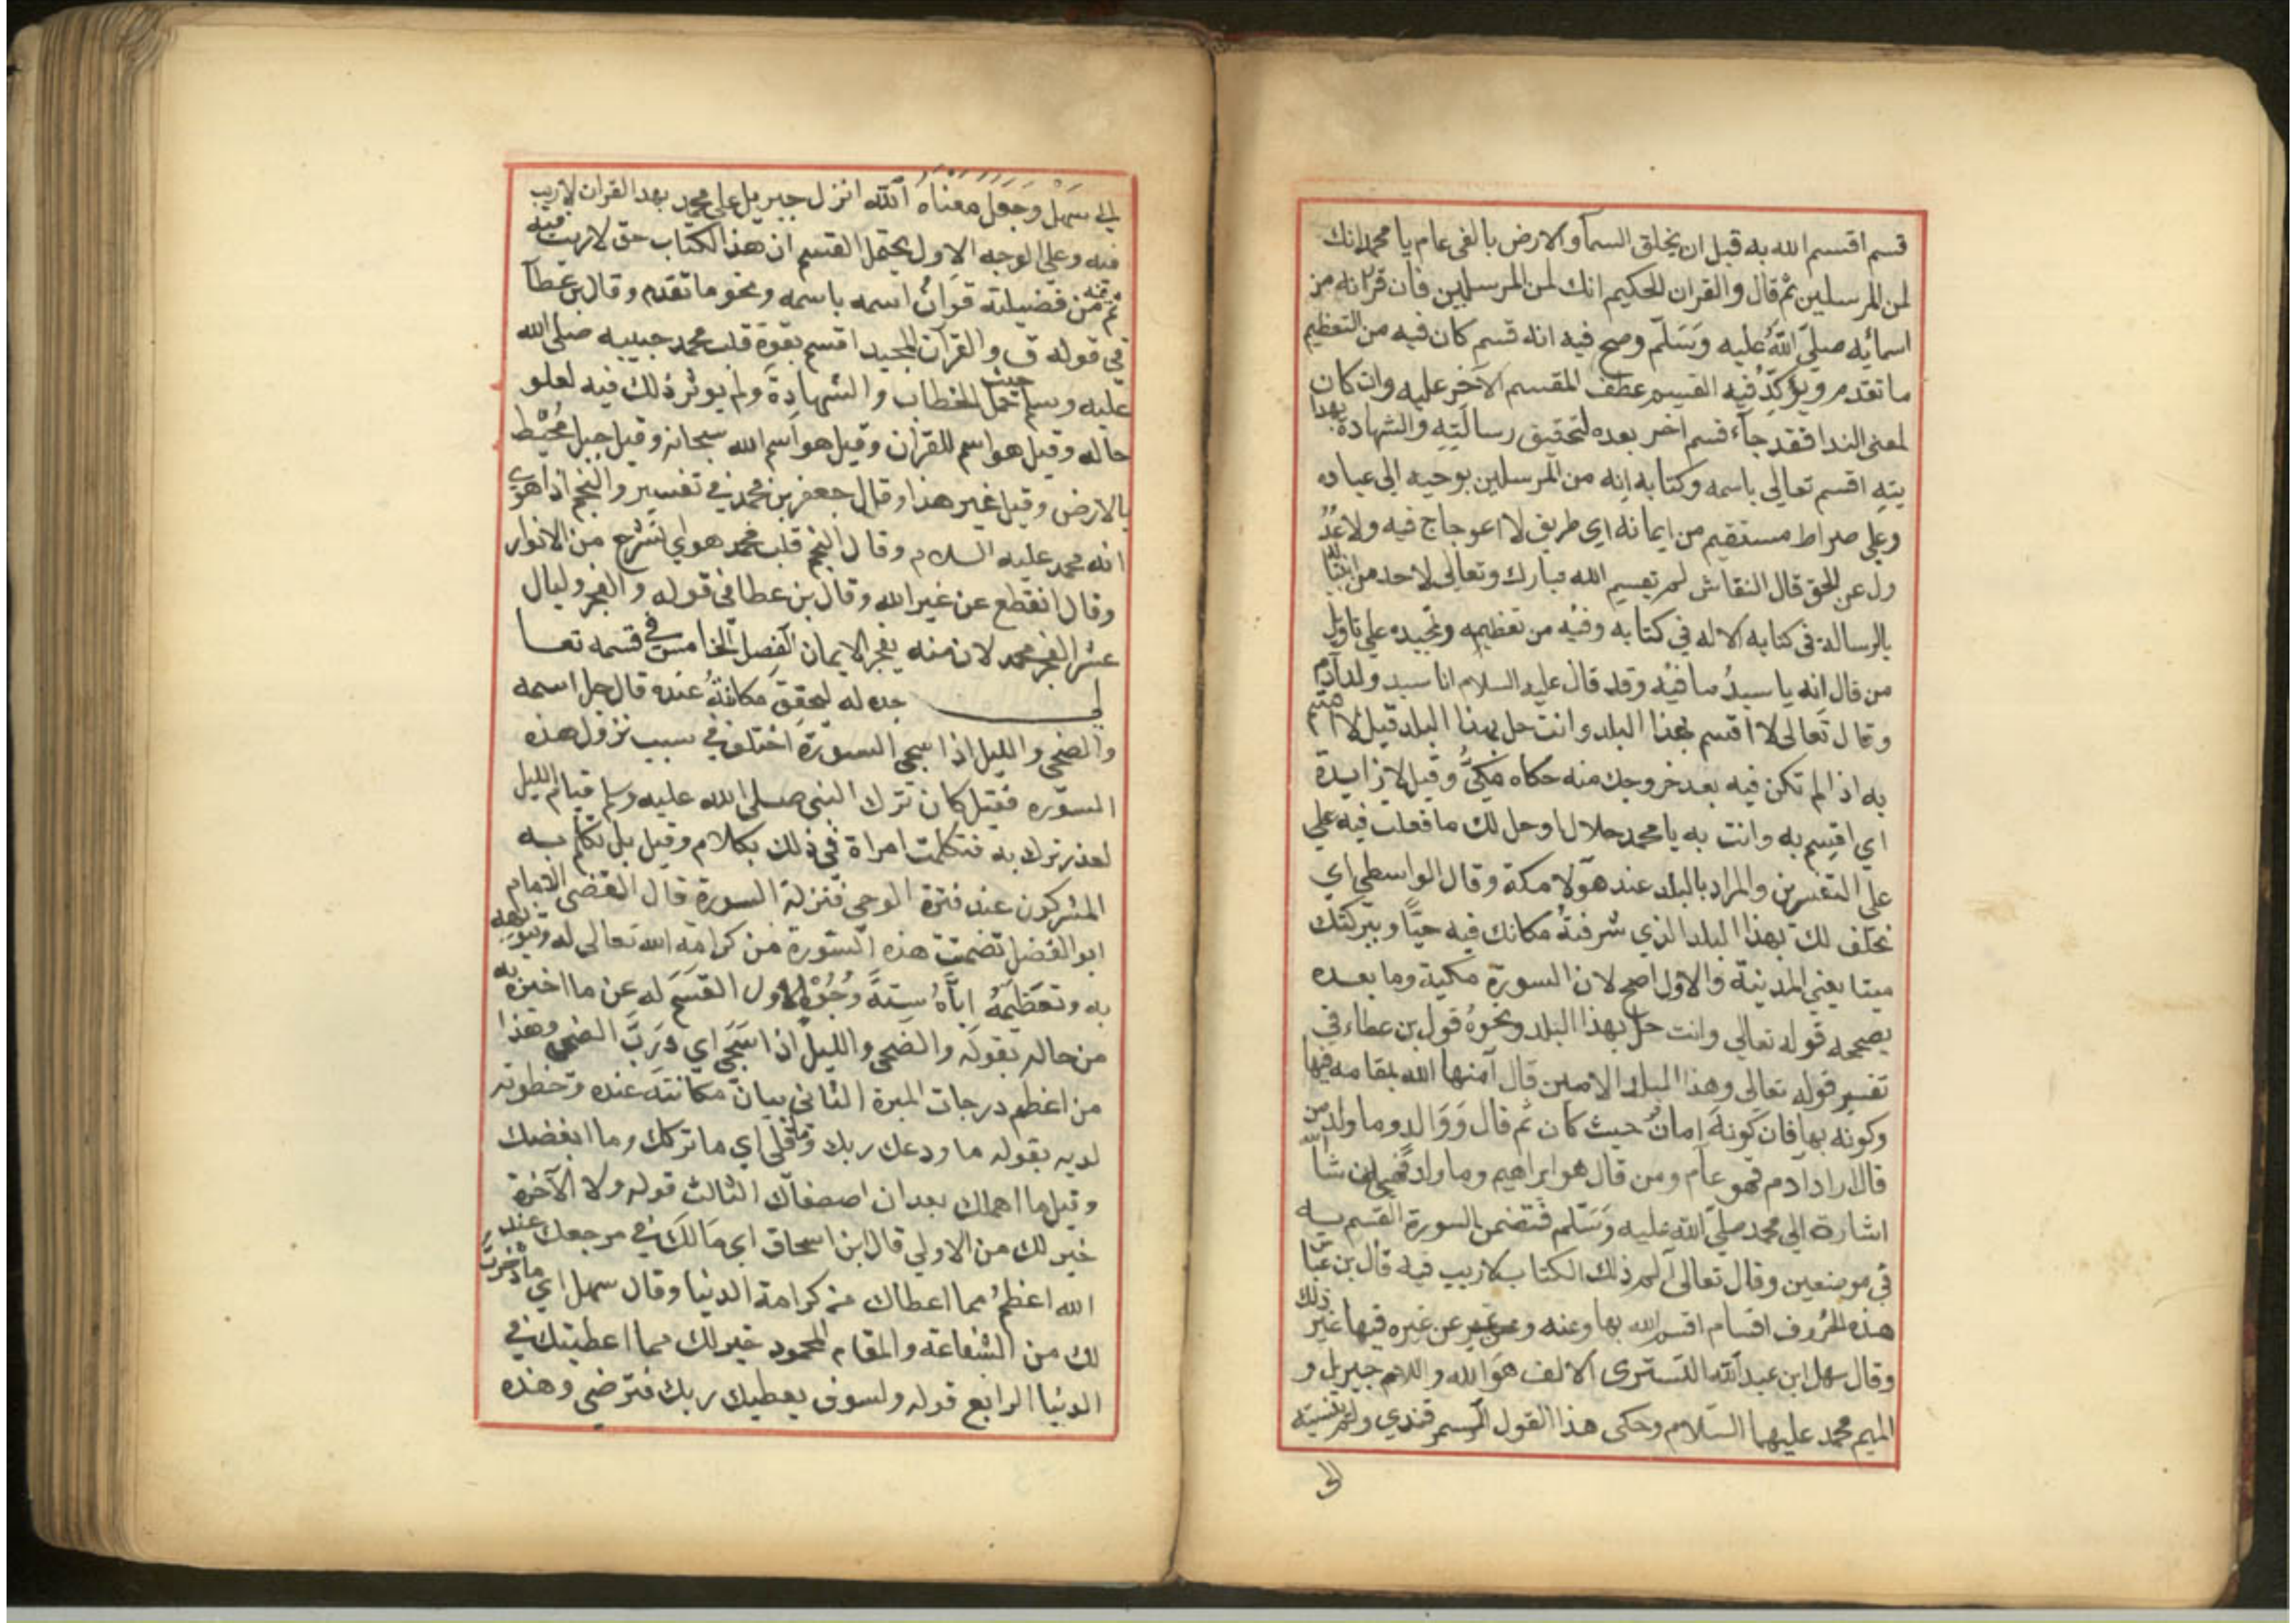 قسم اقسم الله به قبل ان يخلق السمآ والارض بالفى عام يا محمد انك
لمن المرسلين ثم قال والقران الحكيم انك لمن المرسلين فان قرانه من
اسمائه صلى الله عليه وسلم وصح فيه انه قسم كان فيه من التعظيم
ما تقدم ويؤكد فيه القسم عطف المقسم الآخر عليه وان كان
لمعنى الندا فقد جآء قسم اخر بعده لتحقيق رسالته والشهادة بهدا
يته اقسم تعالى باسمه وكتابه انه من المرسلين بوحيه الى عباده
وعلى صراط مستقيم من ايمانه اي طريق لا اعوجاج فيه ولا عد
ول عن الحق قال النقاش لم يقسم الله تبارك وتعالى لاحد من انبيا
بالرسالة فى كتابه الا له في كتابه وفيه من تعظيمه وتمجيده على تاويل
من قال انه يا سيد ما فيه وقد قال عليه السلام انا سيد ولد آدم
وقال تعالى لا اقسم بهذا البلد وانت حل بهذا البلد قيل لا اقسم
به اذا لم تكن فيه بعد خروجك منه حكاه مكي وقيل لا زايدة
اي اقسم به وانت به يا محمد حلال او حل لك ما فعلت فيه على
على التفسرين والمراد بالبلد عند هولا مكة وقال الواسطي اي
نحلف لك بهذا البلد الذي شرفته مكانك فيه حيّا وببركتك
ميتا يعني المدينة والاول اصح لان السورة مكية وما بعده
يصححه قوله تعالى وانت حل بهذا البلد ونحوه قول بن عطاء في
تفسير قوله تعالى وهذا البلد الامين قال آمنها الله بمقامه فيها
وكونه بها فان كونه امان حيث كان ثم قال ووالد وما ولد من
قال اراد ادم فهو عام ومن قال هو ابراهيم وما ولد فهي ان شا الله
اشارة الى محمد صلى الله عليه وسلم فتضمن السورة القسم به
في موضعين وقال تعالى آلم ذلك الكتاب لا ريب فيه قال بن عبا س
هذه الحروف اقسام اقسم الله بها وعنه وعن غيره فيها غير ذلك
وقال سهل ابن عبد الله التسترى الالف هو الله واللام جبريل و
الميم محمد عليهما السلام وحكى هذا القول السمرقندي ولم ينسبه
الى
الى سهل وجعل معناه الله انزل جبريل على محمد بهذا القران لا ريب
فيه وعلى الوجه الاول يحتمل القسم ان هذا الكتاب حق لا ريب فيه
ثم فيه من فضيلته قران اسمه باسمه ونحو ما تقدم وقال بن عطآ
في قوله ق والقرآن المجيد اقسم بقوة قلب محمد حبيبه صلى الله
عليه وسلم حيث حمل الخطاب والشهادة ولم يوثر ذلك فيه لعلو
حاله وقيل هو اسم للقران وقيل هو اسم الله سبحانه وقيل جبل محيط
بالارض وقيل غير هذا وقال جعفر بن محمد في تفسير والنجم اذا هوى
انه محمد عليه السلام وقال النجم قلب محمد هوى اي انشرح من الانوار
وقال انقطع عن غير الله وقال بن عطا في قوله والفجر وليال
عشر الفجر محمد لان منه يفجر الايمان الفصل الخامس في قسمه تعا
لى جده له ليحقق مكانته عنده قال جل اسمه
والضحى والليل اذا سجى السورة اختلف في سبب نزول هذه
السورة فقيل كان ترك النبي صلى الله عليه وسلم قيام الليل
لعذر نزل به فتكلمت امراة في ذلك بكلام وقيل بل تكلم به
المشركون عند فترة الوحي فنزلة السورة قال القضى الامام
ابو الفضل تضمت هذه السورة من كرامة الله تعالى له وتنويهه
به وتعظيمه اياه ستة وجوه الاول القسم له عن ما اخبره به
من حاله بقوله والضحى والليل اذا سجى اي ورب الضحى وهذا
من اعظم درجات المبرة الثاني بيان مكانته عنده وحظوته
لديه بقوله ما ودعك ربك وما قلى اي ما تركك وما ابغضك
وقيل ما اهملك بعد ان اصطفاك الثالث قوله ولا الآخرة
خير لك من الاولى قال ابن اسحاق اي مالك في مرجعك عند
الله اعظم مما اعطاك من كرامة الدنيا وقال سهل اي ما ذخرت
لك من الشفاعة والمقام المحمود خير لك مما اعطيتك في
الدنيا الرابع قوله ولسوف يعطيك ربك فترضي وهذه